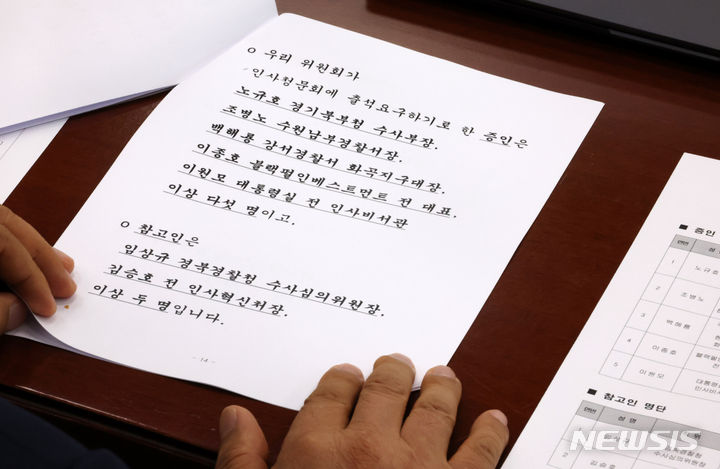 ○ 우리 위원회가
인사청문회에 출석요구하기로 한 증인은
노규호 경기북부청 수사부장.
조병노 수원남부경찰서장.
백해룡 강서경찰서 화곡지구대장.
이종호 블랙펄인베스트먼트 전 대표.
이원모 대통령실 전 인사비서관
이상 다섯 명이고.
○ 참고인은
임상규 경북경찰청 수사심의위원장.
김승호 전 인사혁신처장.
이상 두 명입니다.
- 14 -
■ 증인
연번 성
1 노규호
2 조병노
3 백해룡
4 이종호 블랙펄
5 이원모 대통령실
인사비서
■ 참고인 명단
연번 성 명
수사심의위
김승호
NEWSIS